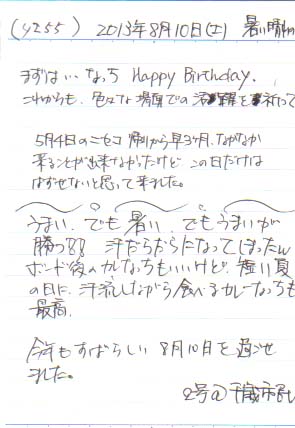 (4255) 2013年8月10日(土) 暑い晴れ
まずは…なっち Happy Birthday.
これからも、色々な場面での活躍を祈って
5月4日のニセコ帰りから早3ヶ月、なかなか
来ることが出来なかったけど この日だけは
はずせないと思って来ました。
うまい、でも暑い、でもうまいが
勝つ!! 汗だらだらになってしまったん
ボード後のカレなっちもいいけど、暑い夏
の日に、汗流しながら食べるカレーなっちも
最高
今年もすばらしい 8月10日を過ごせ
ました。
2号@千歳市